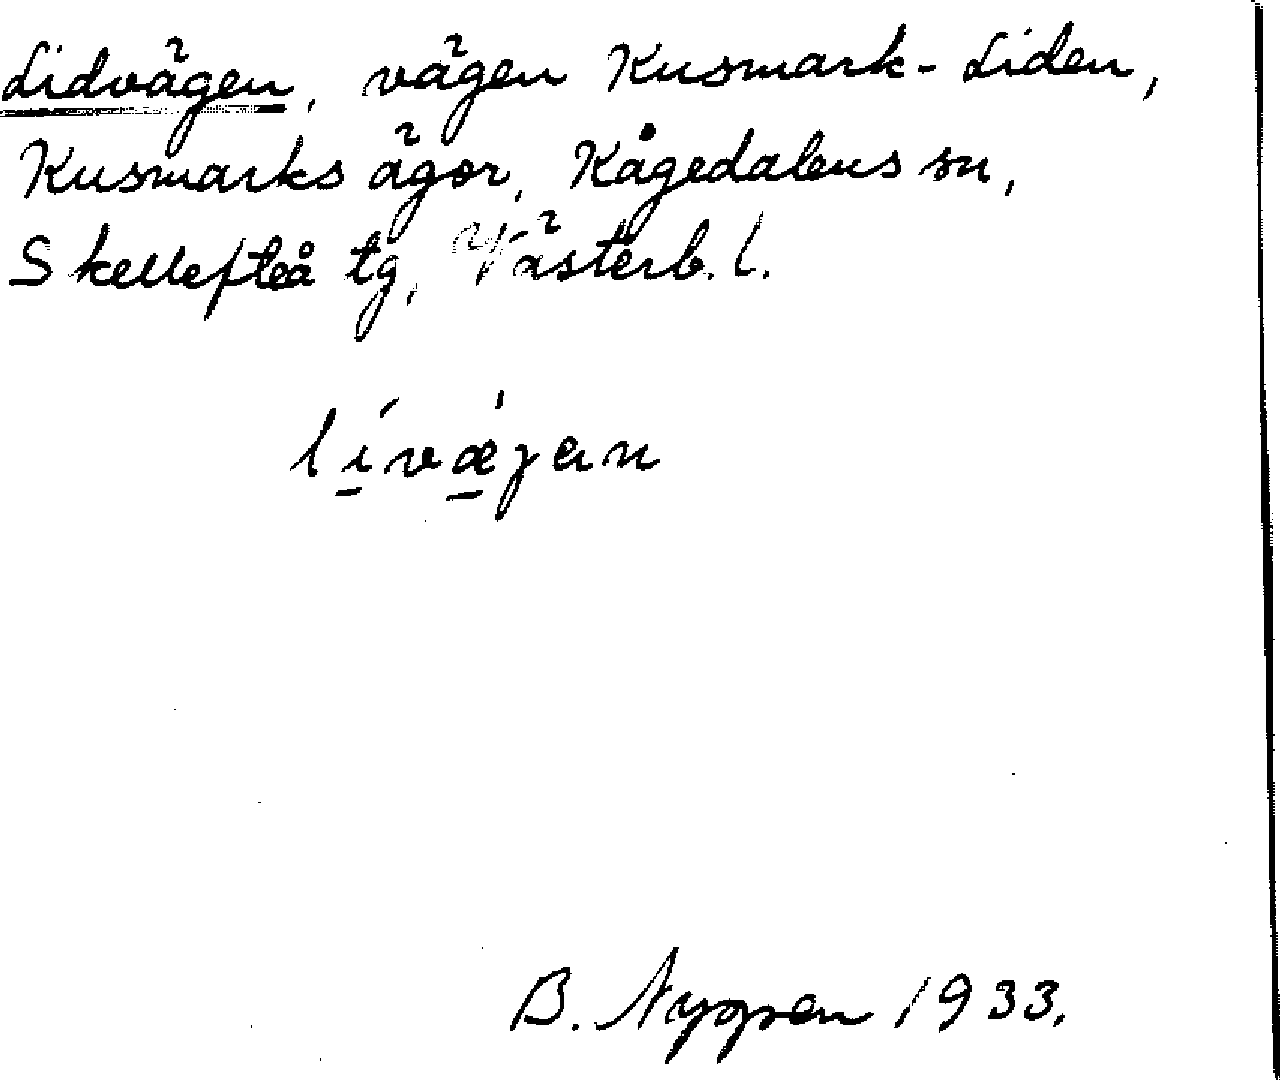 Lidvägen, vägen Kusmark-Liden,
Kusmarks ägor, Kågedalens sn,
Skellefteå tg, Västerb. l.
lívæ̀jan
B. Nygren 1933.